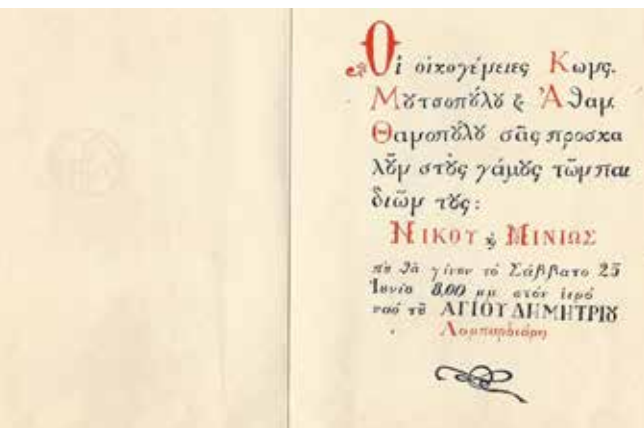 Οἱ οἰκογένειες Κων̣ς.
Μȣτσοπȣ́λȣ & Ἀθαν
Θανοπȣ́λȣ σᾶς προσκα
λȣ͂ν στȣ̀ς γάμȣς τῶν παι
διῶν τȣς:
ΝΙΚΟΥ & ΜΙΝΙΩΣ
πȣ̀ θὰ γίνȣν τὸ Σάββατο 25
Ἰȣνίȣ 8,00 μμ στὸν ἱερὸ
ναὸ τȣ͂ ΑΓΙΟΥ ΔΗΜΗΤΡΙȢ
Λουμπαρδιάρη